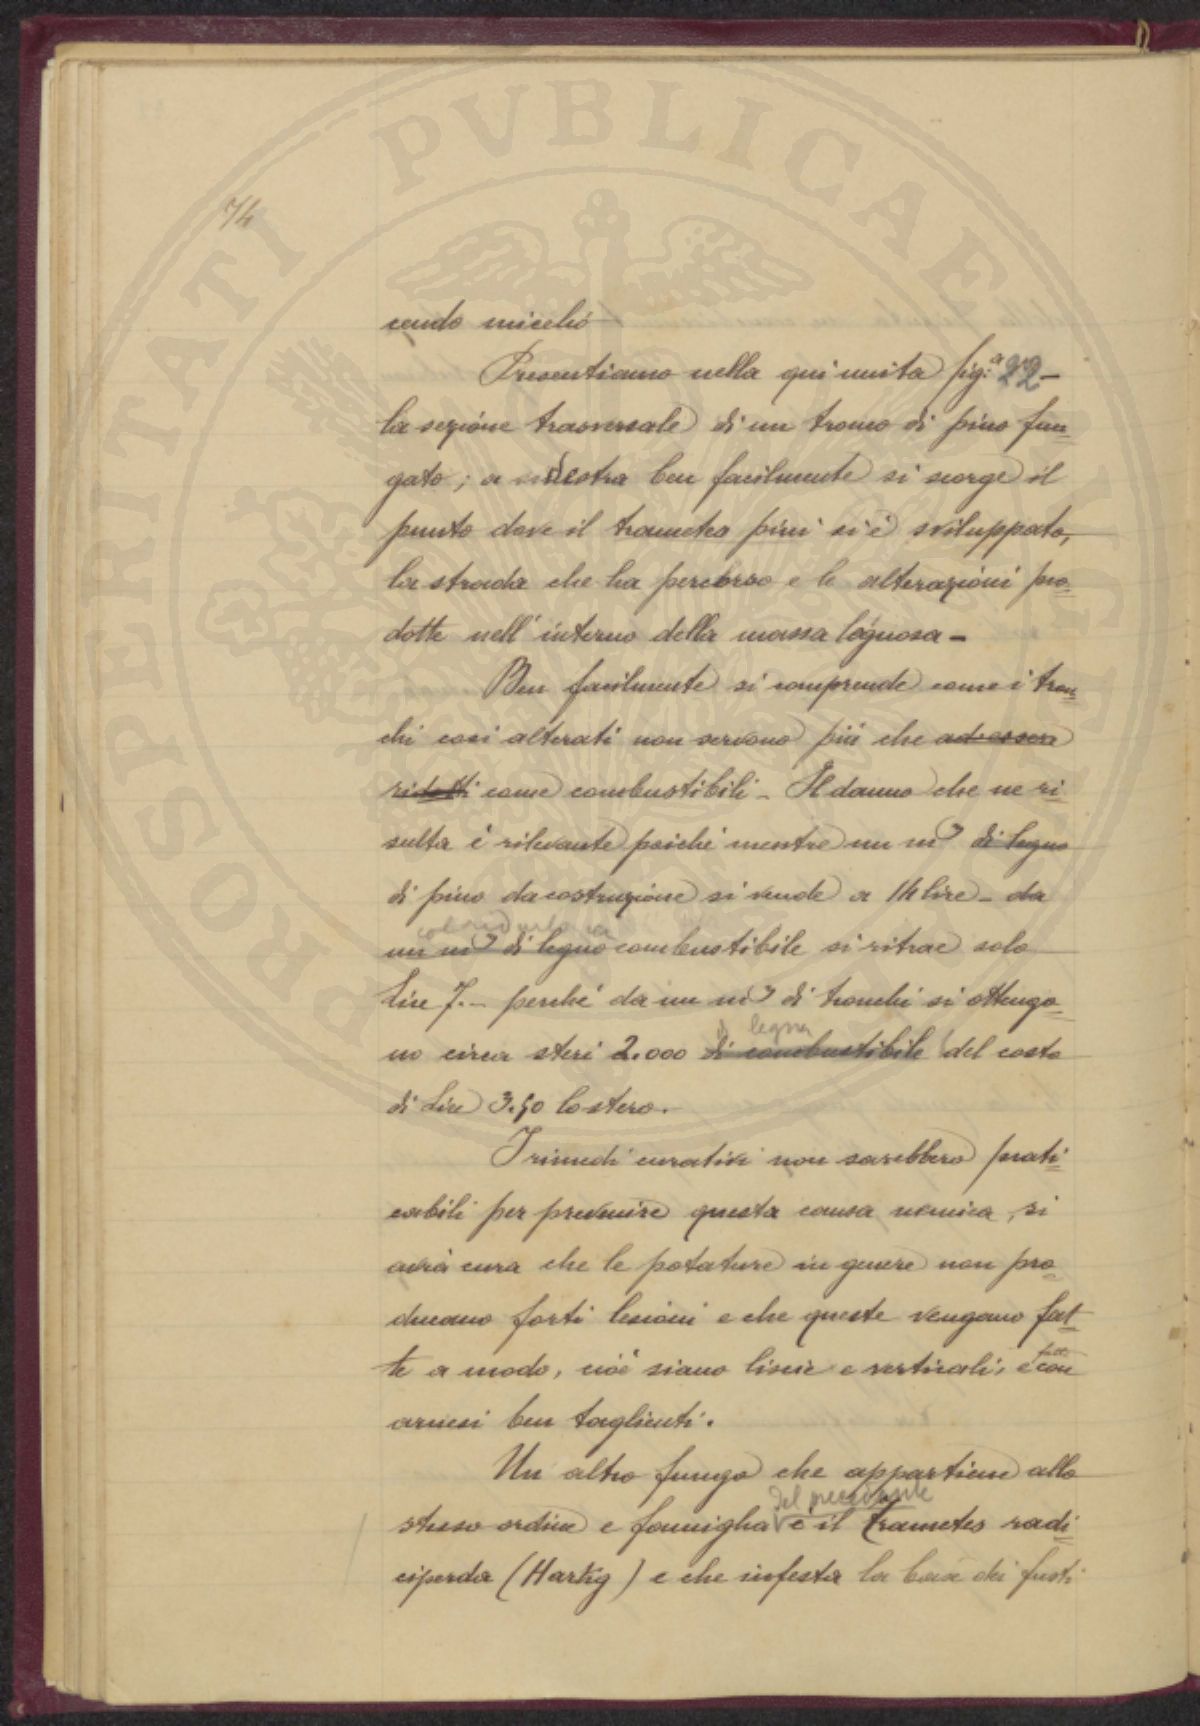 74
cendo micelio
Presentiamo nella qui unita fig:ª 22 -
la sezione trasversale di un tronco di pino fun-
gato; a destra ben facilmente si scorge il
punto dove il trametes pini si è sviluppato,
la strada che ha percorso e le alterazioni pro-
dotte nell'interno della massa legnosa -
Ben facilmente si comprende come i tron-
chi così alterati non servono più che ad essere
ridotti come combustibili - Il danno che ne ri-
sulta è rilevante poiché mentre un m³ di legno
di pino da costruzione si vende a 14 lire - da
un m³ di legno combustibile si ritrae solo
Lire 7.- perché da un m³ di tronchi si ottengo-
di legna
no circa steri 2.000 di combustibile del costo
di Lire 3.50 lo stero.
I rimedi curativi non sarebbero prati-
cabili per prevenire questa causa nemica, si
avrà cura che le potature in genere non pro-
ducano forti lesioni e che queste vengano fat-
te a modo, cioè siano liscie e verticali, e fatte con
arnesi ben taglienti.
Un altro fungo che appartiene allo
del precedente
stesso ordine e famiglia è il trametes radi-
ciperda (Hartig) e che infesta la base dei fusti
PROSPERITATI PVBLICAE AVGENDAE